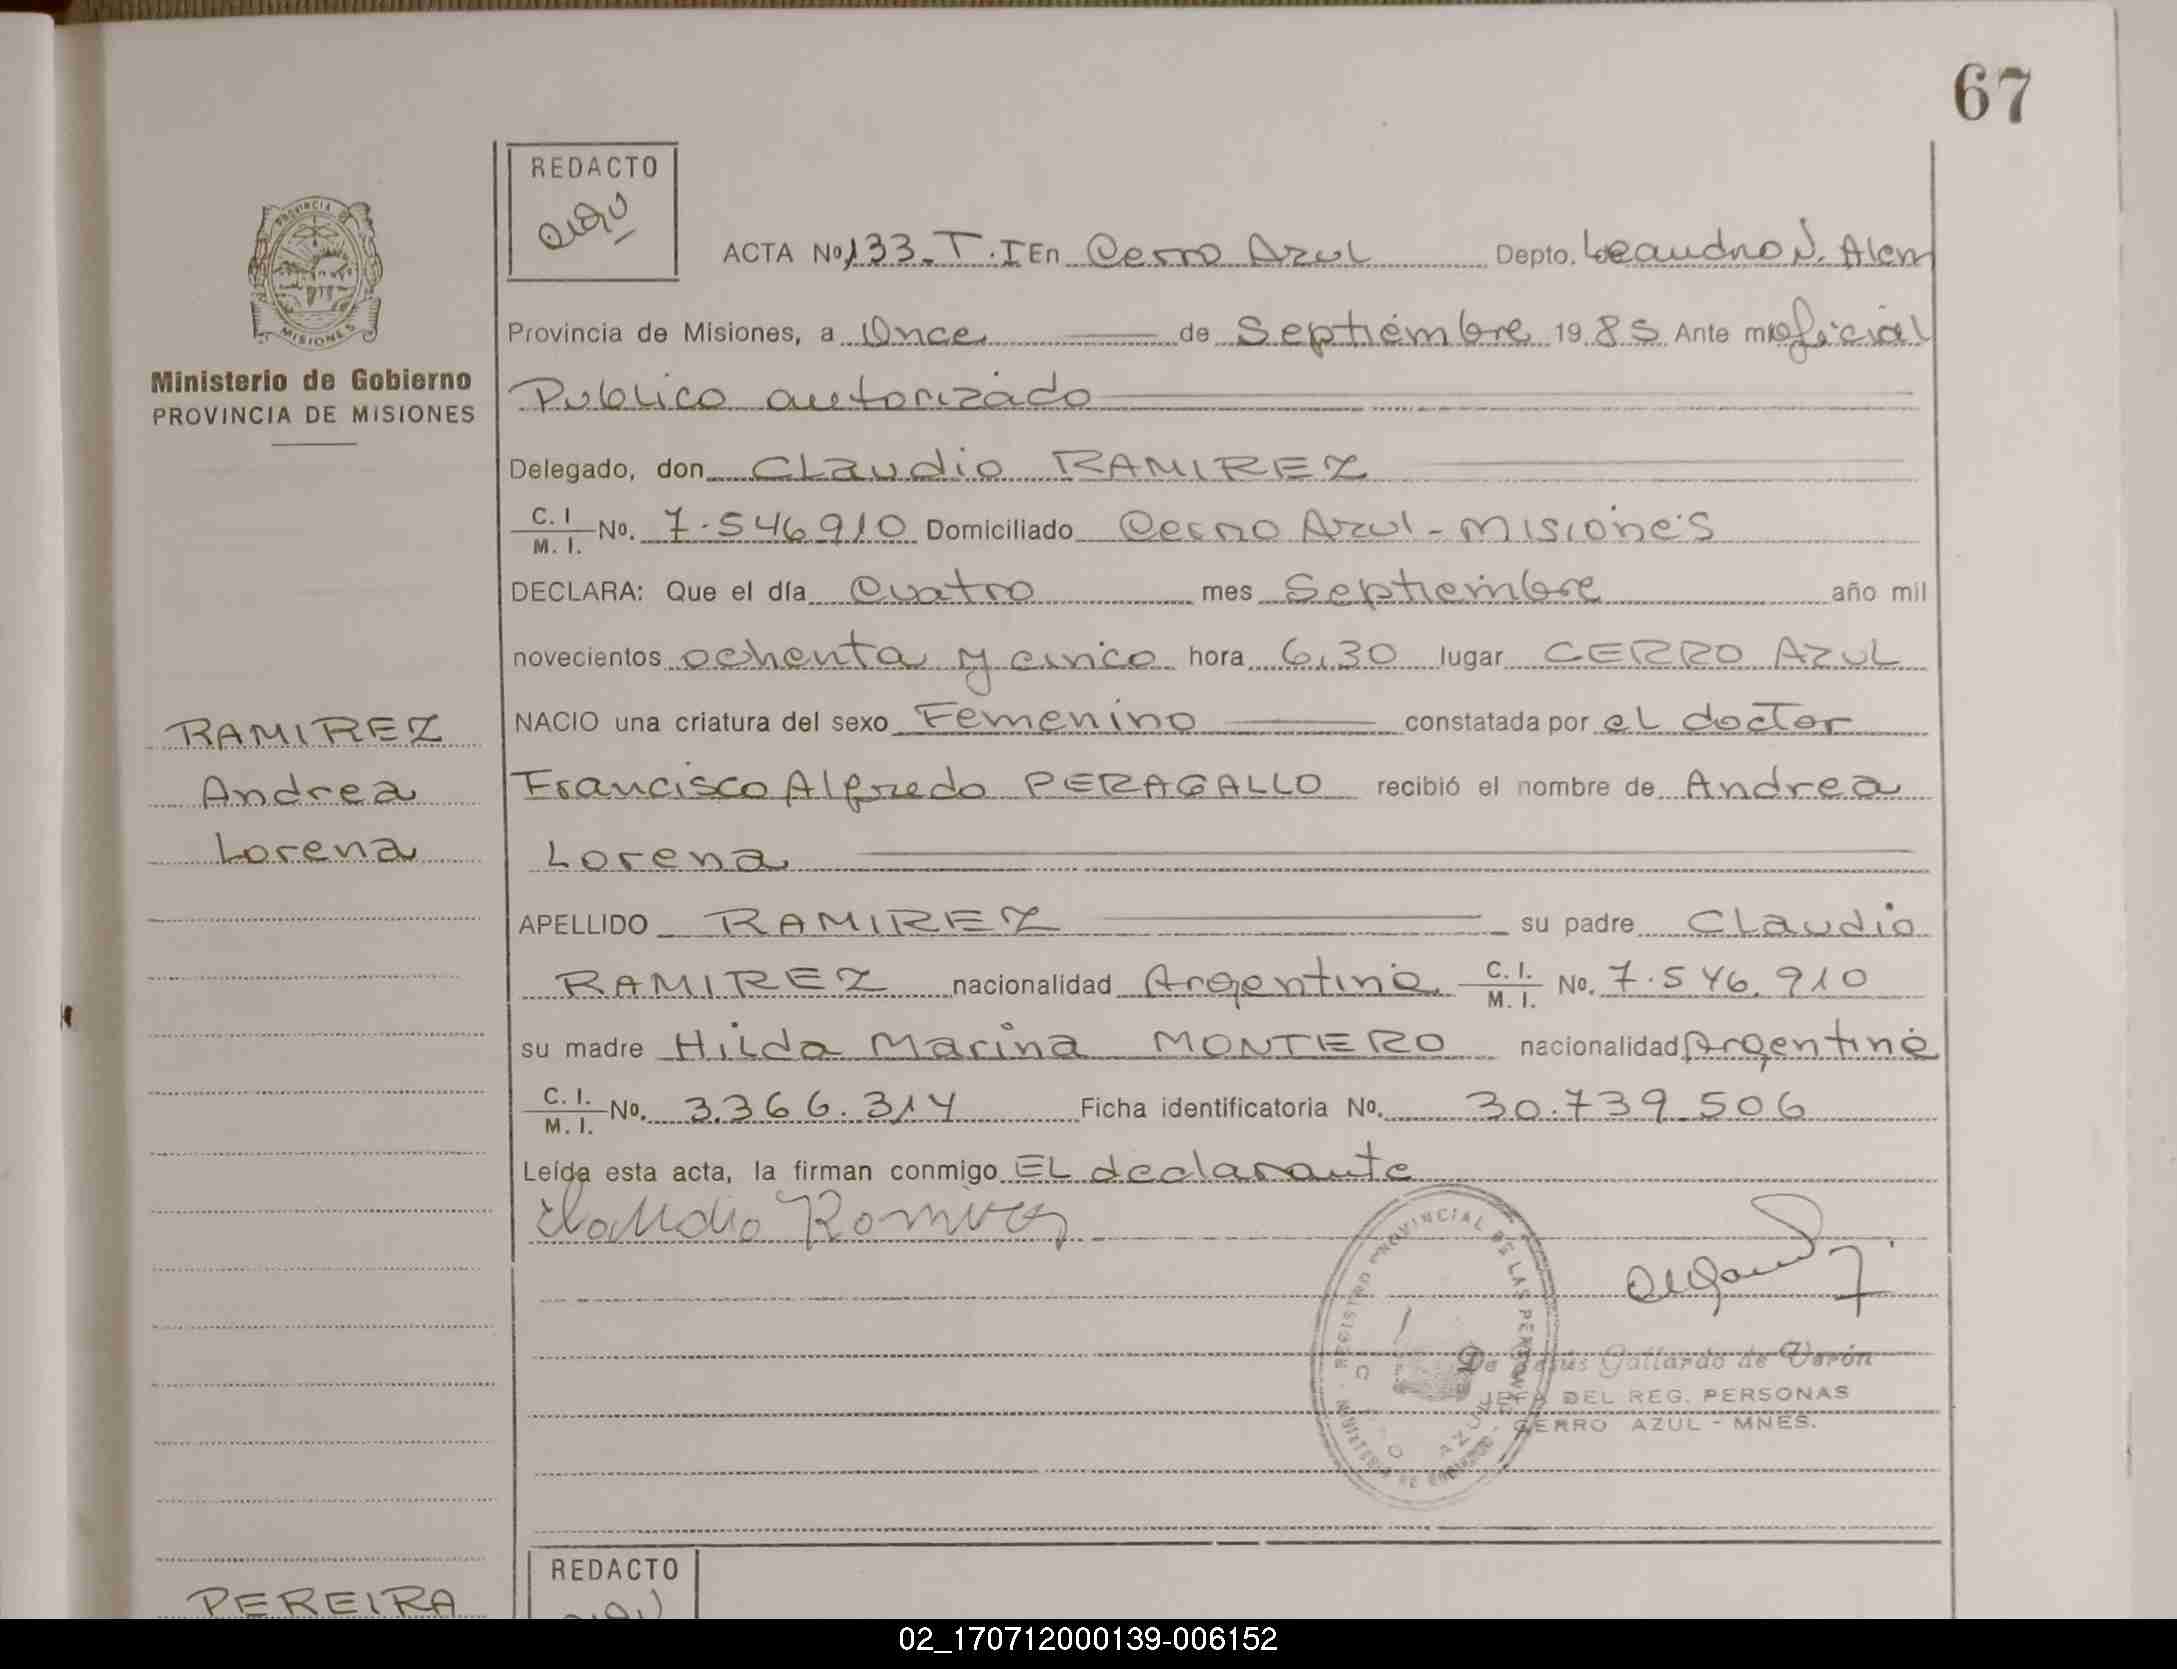 67
REDACTO
ACTA No 133. T. I En Cerro Azul Depto. Leandro N. Alem
Provincia de Misiones, a Once de Septiembre 1985 Ante mi oficial
Publico autorizado
Delegado, don Claudio RAMIREZ
C. I. / M. I. No. 7.546.910 Domiciliado Cerro Azul - Misiones
DECLARA: Que el día Cuatro mes Septiembre año mil
novecientos ochenta y cinco hora 6,30 lugar CERRO AZUL
NACIO una criatura del sexo Femenino constatada por el doctor
Francisco Alfredo PERAGALLO recibió el nombre de Andrea
Lorena
APELLIDO RAMIREZ su padre Claudio
RAMIREZ nacionalidad Argentina C. I. / M. I. No. 7.546.910
su madre Hilda Marina MONTERO nacionalidad Argentina
C. I. / M. I. No. 3.366.314 Ficha identificatoria No. 30.739.506
Leída esta acta, la firman conmigo EL declarante
Claudio Ramirez
PROVINCIA DE MISIONES
Ministerio de Gobierno
PROVINCIA DE MISIONES
RAMIREZ
Andrea
Lorena
REGISTRO PROVINCIAL DE LAS PERSONAS
MINISTERIO DE GOBIERNO
AZUL
De Jesús Gallardo de Verón
JEFA DEL REG. PERSONAS
CERRO AZUL - MNES.
PEREIRA
REDACTO
02_170712000139-006152